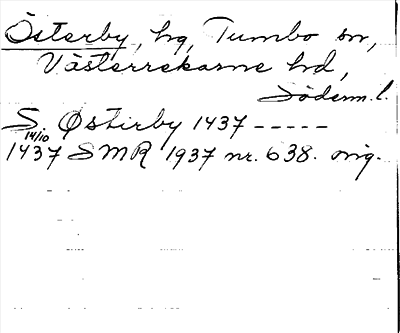 Österby, hg, Tumbo sn,
Västerrekarne hd,
Söderm. l.
S. Østirby 1437 -----
14/10
1437 SMR 1937 nr. 638. orig.